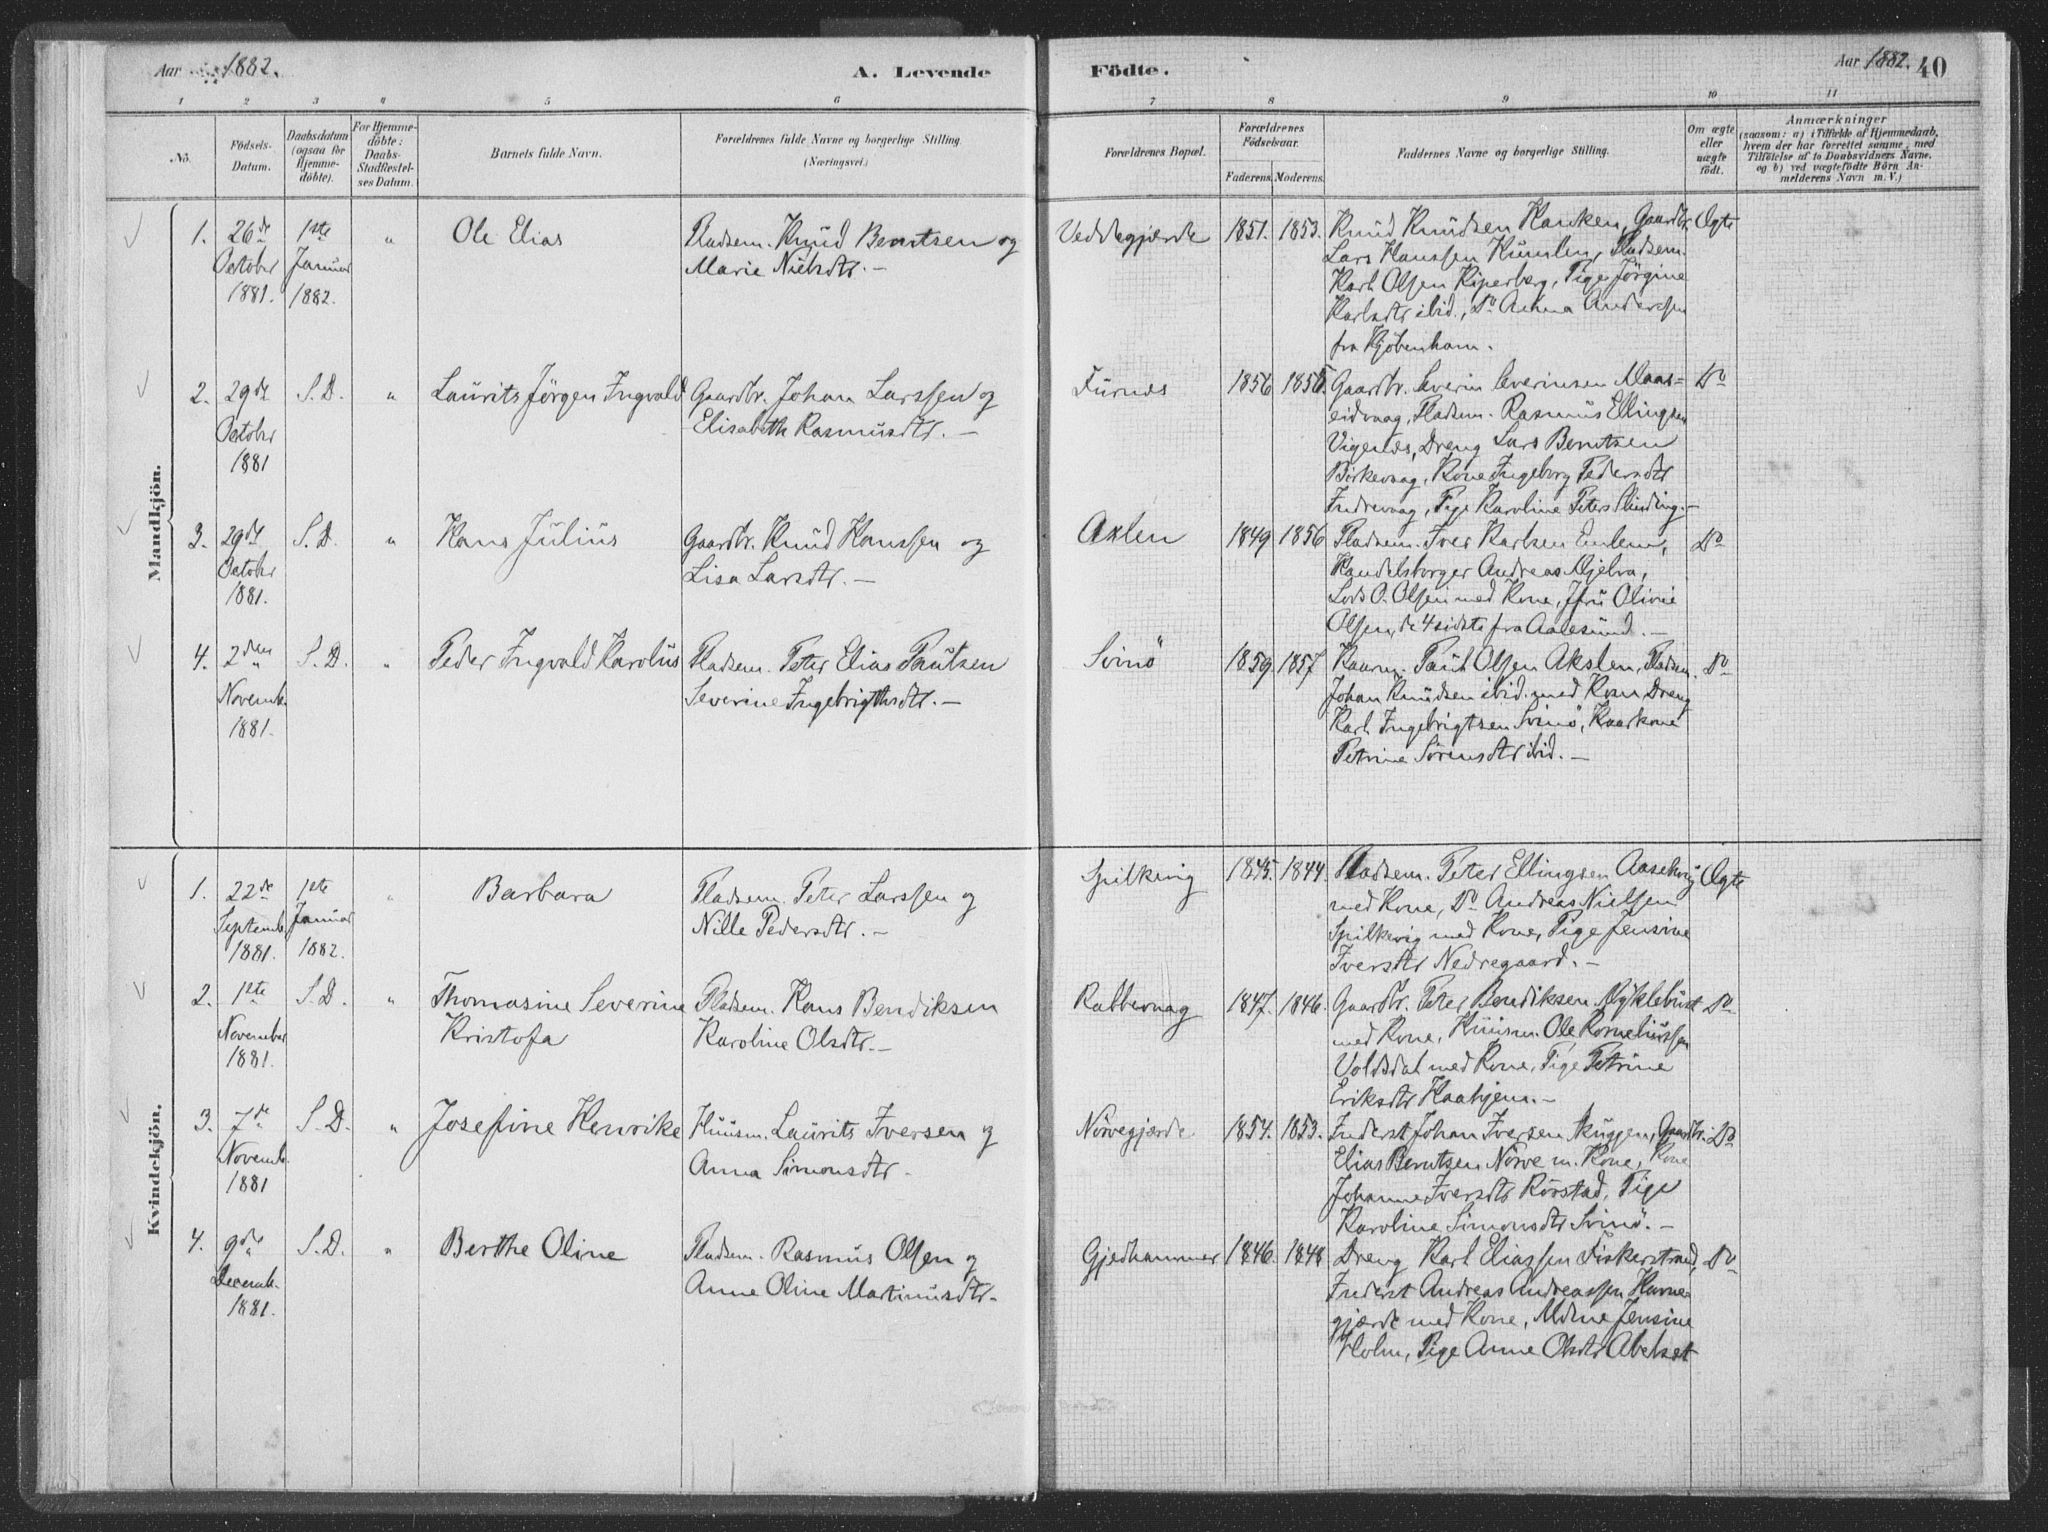 Aar 1882.
A. Levende
Födte.
Aar 1882.
40
1 2 3 4 5 6 7 8 9 10 11
Nö.
Födsels-
Datum.
Daabsdatum
(ogsaa for
Hjemme-
döbte).
For Hjemme-
döbte:
Daabs-
Stadfæstel-
ses Datum.
Barnets fulde Navn.
Forældrenes fulde Navne og borgerlige Stilling.
(Næringsvei.)
Forældrenes Bopæl.
Forældrenes
Födselsaar.
Faderens. Moderens.
Faddernes Navne og borgerlige Stilling.
Om ægte
eller
uægte
födt.
Anmærkninger
(saasom: a) i Tilfælde af Hjemmedaab,
hvem der har forrettet samme, med
Tilföielse af to Daabsvidners Navne,
og b) ved uægtefödte Börn An-
melderens Navn m. V.)
Mandkjön.
1.
26de
October
1881.
1ste
Januar
1882.
"
Ole Elias
Pladsm. Knud Berntsen og
Marie Nielsdtr. -
Veddegjærde
1851.
1853.
Knud Knudsen Hanken, Gaardbr.
Lars Hanssen Humlen, Pladsm.
Karl Olsen Riperberg, Pige Jörgine
Karlsdtr ibid., Do Anna Andersen
fra Kjöbenham.
Ægte
2.
29de
October
1881
S.D.
"
Laurits Jörgen Ingvald
Gaardbr. Johan Larssen og
Elisabeth Rasmusdtr. -
Furnes
1856
1855.
Gaardbr. Severin Severinsen Maas-
eidvaag, Pladsm. Rasmus Ellingsen
Vigenes, Dreng Lars Berntsen
Birkevaag, Kone Ingeborg Pedersdtr
Indrevaag, Pige Karoline Peters
Do
3.
29de
October
1881.
S.D.
"
Hans Julius
Gaardbr. Knud Hanssen og
Lisa Larsdtr. -
Axlen
1849
1856
Pladsm. Iver Karlsen Emlem,
Handelsborger Andreas Mjelva,
Lods O. Olsen med Kone, Jfru Olivie
Olsen, de 4 sidste fra Aalesund. -
Do
4.
2den
Novemb.
1881.
S.D.
"
Peder Ingvald Karolus
Pladsm. Peter Elias Paulsen
Severine Ingebrigtsdtr. -
Svinö
1859
1857
Kaarm. Paul Olsen Akslen, Pladsm.
Johan Knudsen ibid. med Kone, Dreng
Karl Ingebrigtsen Svinö, Kaarkone
Petrine Sörensdtr ibid. -
Do
Kvindekjön.
1.
22de
Septemb.
1881.
1ste
Januar
1882.
"
Barbara
Pladsm. Peter Larssen og
Nille Pedersdtr. -
Spilkevig
1845.
1844.
Pladsm. Peter Ellingsen Aasebvig
med Kone, Do Andreas Nielsen
Spilkevig med Kone, Pige Jensine
Iversdtr Nedregaard. -
Ægte
2.
1ste
November
1881.
S.D.
"
Thomasine Severine
Kristofa
Pladsm. Hans Bendiksen
Karoline Olsdtr. -
Rabbevaag
1847.
1846.
Gaardbr. Peter Bendiksen Myklebust
med Kone, Huusm. Ole Korneliussen
Voldsdal med Kone, Pige Petrine
Eriksdtr Haahjem. -
Do
3.
7de
Novemb.
1881
S.D.
"
Josefine Henrike
Huusm. Laurits Iversen og
Anna Simonsdtr.
Nörvegjærde
1854.
1853.
Inderst Johan Iversen Skuggen, Gaardbr.
Elias Berntsen Nörve m. Kone, Kone
Johanne Iversdtr Rörstad, Pige
Karoline Simonsdtr Svinö. -
Do
4.
9de
Decemb.
1881.
S.D.
"
Berthe Oline
Pladsm. Rasmus Olsen og
Anne Oline Martinusdtr.
Gjedhammer
1846.
1848
Dreng Karl Eliassen Fiskerstrand,
Inderst Andreas Andreassen Havne-
gjærde med Kone, Mdme Jensine
Holm, Pige Anne Olsdtr Abelset
Do